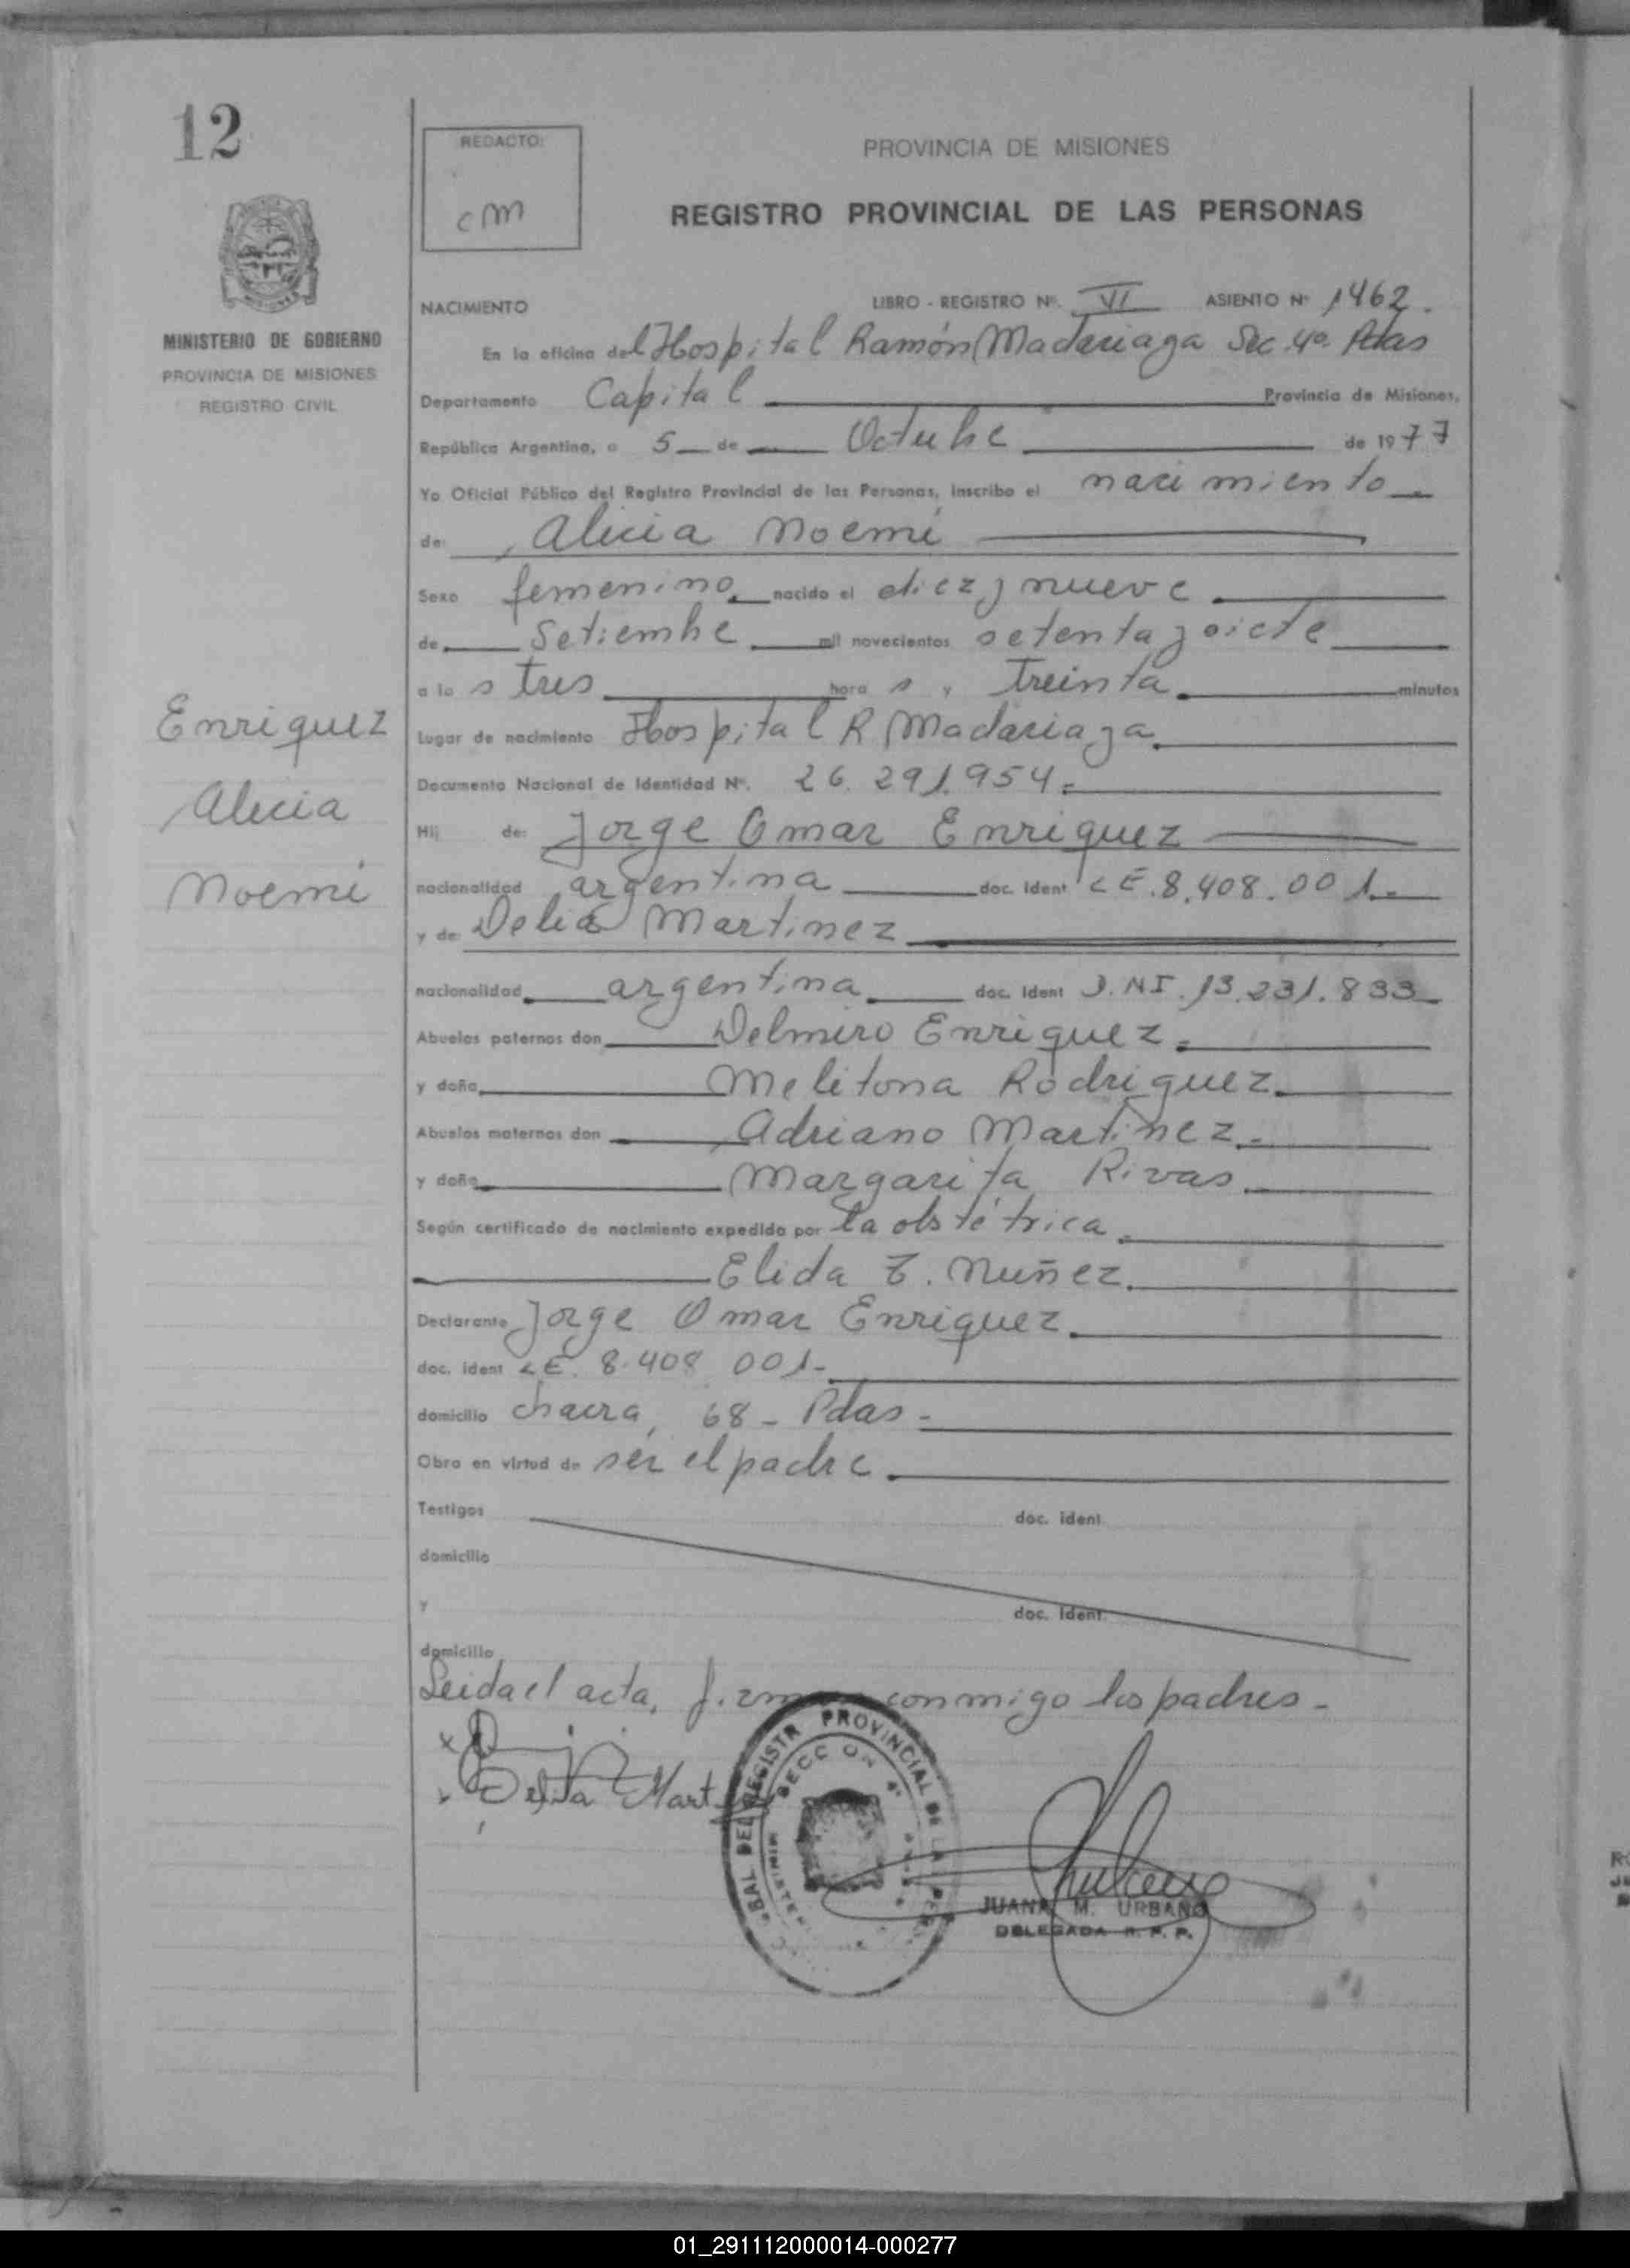 12
MINISTERIO DE GOBIERNO
PROVINCIA DE MISIONES
REGISTRO CIVIL
Enriquez
Alicia
Noemi
REDACTO:
cm
PROVINCIA DE MISIONES
REGISTRO PROVINCIAL DE LAS PERSONAS
NACIMIENTO LIBRO - REGISTRO Nº. VI ASIENTO Nº 1462.
En la oficina del Hospital Ramón Madariaga Sec. 4a. Pdas
Departamento Capital Provincia de Misiones,
República Argentina, a 5 de Octubre de 1977
Yo Oficial Público del Registro Provincial de las Personas, inscribo el nacimiento
de: Alicia Noemi
Sexo femenino. nacido el diez y nueve
de Setiembre mil novecientos setenta y siete
a las tres horas y treinta minutos
Lugar de nacimiento Hospital R Madariaga
Documento Nacional de Identidad Nº. 26.291.954.
Hij de: Jorge Omar Enriquez
nacionalidad argentina doc. ident LE.8.408.001.-
y de Delia Martinez
nacionalidad argentina doc. ident D.NI.13.231.833
Abuelos paternos don Delmiro Enriquez.
y doña Melitona Rodriguez
Abuelos maternos don Adriano Martinez.
y doña Margarita Rivas
Según certificado de nacimiento expedido por la obstétrica
Elida Z. Nuñez.
Declarante Jorge Omar Enriquez
doc. ident LE. 8.408 001-
domicilio chacra, 68 - Pdas-
Obra en virtud de ser el padre
Testigos doc. ident
domicilio
y doc. ident.
domicilio
Leida el acta, conmigo los padres-
Delia Mart
PROVINCIAL DE LA
SECC ON 4ª
JUANA M. URBANO
DELEGADA R. P. P.
01_291112000014-000277